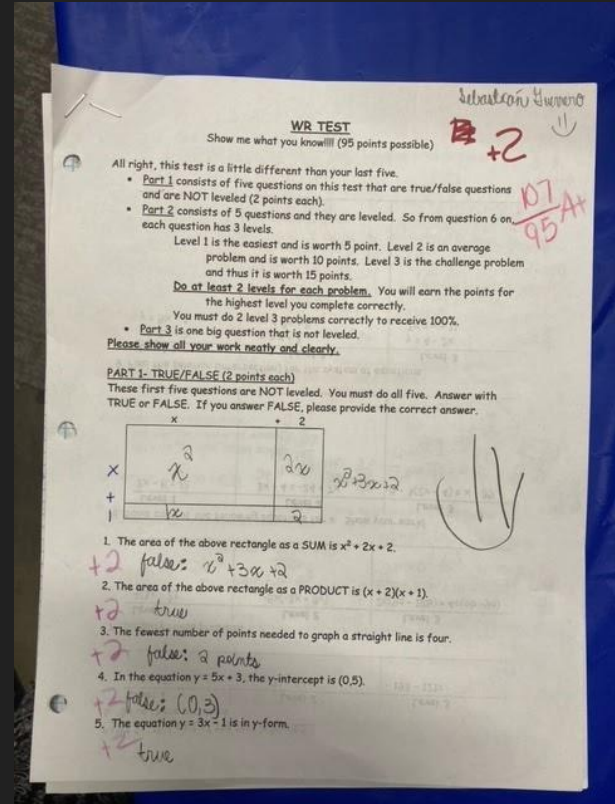 Sebastian Guerrero
WR TEST
Show me what you know!!!! (95 points possible)
+2
107
95 A+
All right, this test is a little different than your last five.
• Part 1 consists of five questions on this test that are true/false questions
and are NOT leveled (2 points each).
• Part 2 consists of 5 questions and they are leveled. So from question 6 on,
each question has 3 levels.
Level 1 is the easiest and is worth 5 point. Level 2 is an average
problem and is worth 10 points. Level 3 is the challenge problem
and thus it is worth 15 points.
Do at least 2 levels for each problem. You will earn the points for
the highest level you complete correctly.
You must do 2 level 3 problems correctly to receive 100%.
• Part 3 is one big question that is not leveled.
Please show all your work neatly and clearly.
PART 1- TRUE/FALSE (2 points each)
These first five questions are NOT leveled. You must do all five. Answer with
TRUE or FALSE. If you answer FALSE, please provide the correct answer.
x + 2
x x² 2x x²+3x+2
+
1 1x 2
1. The area of the above rectangle as a SUM is x² + 2x + 2.
+2 false: x²+3x+2
2. The area of the above rectangle as a PRODUCT is (x + 2)(x + 1).
+2 true
3. The fewest number of points needed to graph a straight line is four.
+2 false: 2 points
4. In the equation y = 5x + 3, the y-intercept is (0,5).
+2 false: (0,3)
5. The equation y = 3x - 1 is in y-form.
+2 true